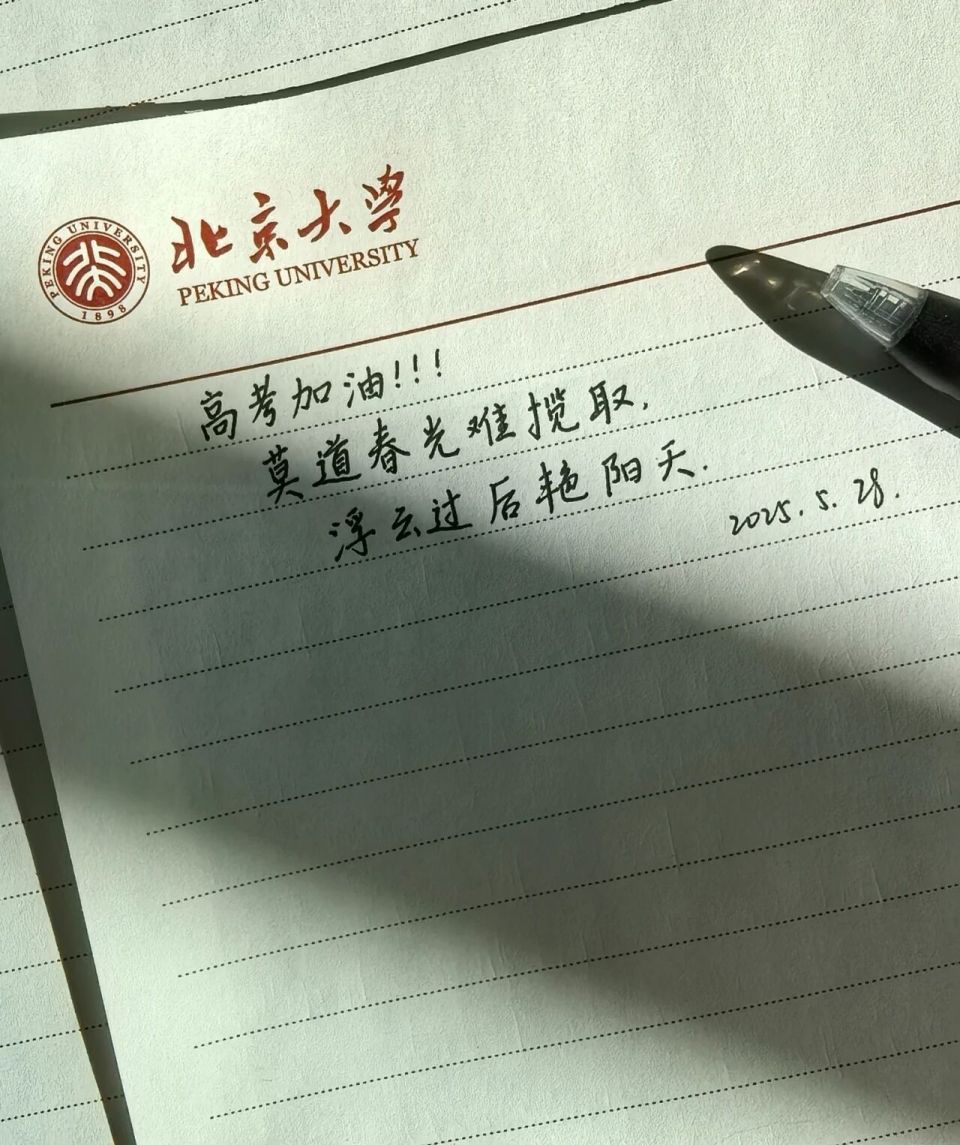 北京大学
PEKING UNIVERSITY
PEKING UNIVERSITY
1898
高考加油!!!
莫道春光难揽取.
浮云过后艳阳天.
2025.5.28.